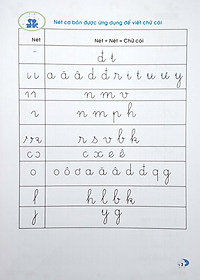 Nét cơ bản được ứng dụng để viết chữ cái
Nét
Nét + Nét = Chữ cái
đ t
a ă â d đ r i t u ư y
n m v
n m p h
r s v b k
c x e ê
o ô ơ a ă â d đ q g
l h l b k
y g